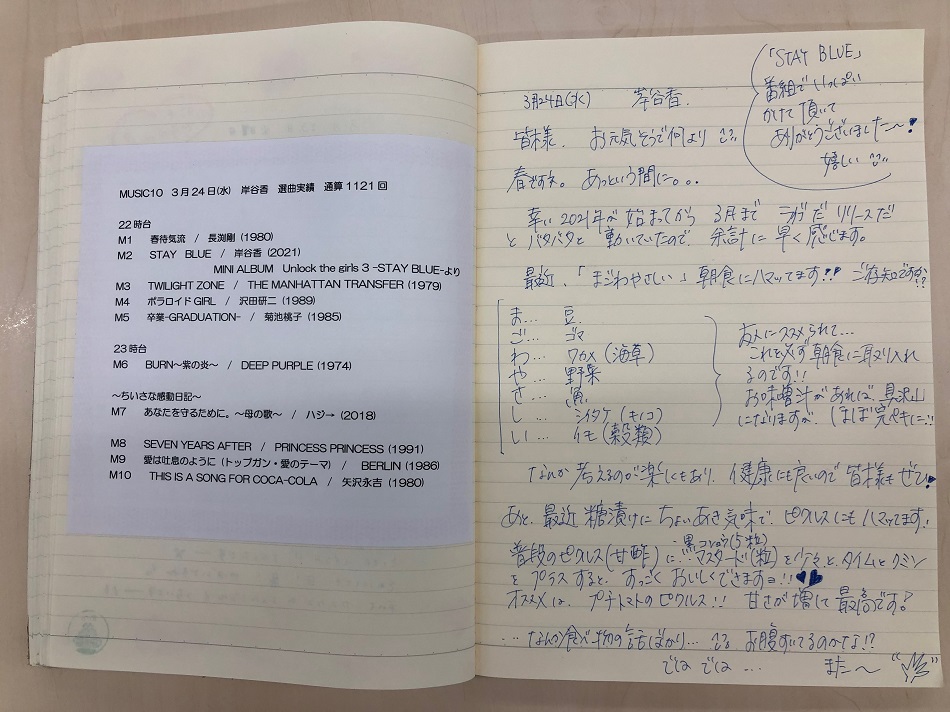 MUSIC10 3月24日(水) 岸谷香 選曲実績 通算1121回
22時台
M1 春待気流 / 長渕剛 (1980)
M2 STAY BLUE / 岸谷香 (2021)
MINI ALBUM Unlock the girls 3 -STAY BLUE-より
M3 TWILIGHT ZONE / THE MANHATTAN TRANSFER (1979)
M4 ポラロイドGIRL / 沢田研二 (1989)
M5 卒業-GRADUATION- / 菊池桃子 (1985)
23時台
M6 BURN～紫の炎～ / DEEP PURPLE (1974)
～ちいさな感動日記～
M7 あなたを守るために。～母の歌～ / ハジ→ (2018)
M8 SEVEN YEARS AFTER / PRINCESS PRINCESS (1991)
M9 愛は吐息のように (トップガン・愛のテーマ) / BERLIN (1986)
M10 THIS IS A SONG FOR COCA-COLA / 矢沢永吉 (1980)
3月24日(水) 岸谷香.
「STAY BLUE」
番組でいっぱい
かけて頂いて
ありがとうございました～!
嬉しい
皆様. お元気そうで何より
春ですネ。あっという間に。。。
幸い2021年が始まってから 3月まで ライブだ リリースだ
とバタバタと 動いていたので. 余計に 早く感じます。
最近.「まごわやさしい」朝食にハマってます!! ご存知ですか??
ま… 豆.
ご… ゴマ
わ… ワカメ (海草)
や… 野菜
さ… 魚
し… シイタケ (キノコ)
い… イモ (穀類)
友人にススメられて…
これを必ず朝食に取り入れ
るのです!!
お味噌汁があれば. 具沢山
になりますが. ほぼ完ペキに!!
なんか 考えるのが楽しくもあり. 健康にも良いので 皆様も ぜひ
あと. 最近 糖漬けに ちょいあき気味で. ピクルスにも ハマってます!
普段のピクルス(甘酢) に. 黒コショウ(5粒)
マスタード(粒) を少々と. タイムと クミン
を プラスすると. すっごく おいしくできますョ!!
オススメは. プチトマトのピクルス!! 甘さが増して 最高です!
… なんか食べ物の話ばかり… お腹すいてるのかな!?
では では … また～